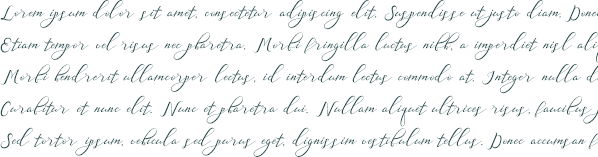 Lorem ipsum dolor sit amet, consectetur adipiscing elit. Suspendisse ut justo diam. Donec
Etiam tempor vel risus nec pharetra. Morbi fringilla luctus nibh, a imperdiet nisl
Morbi hendrerit ullamcorper lectus, id interdum lectus commodo at. Integer nulla
Curabitur et nunc elit. Nunc et pharetra dui. Nullam aliquet ultrices risus, faucibus
Sed tortor ipsum, vehicula sed purus eget, dignissim vestibulum tellus. Donec accumsan